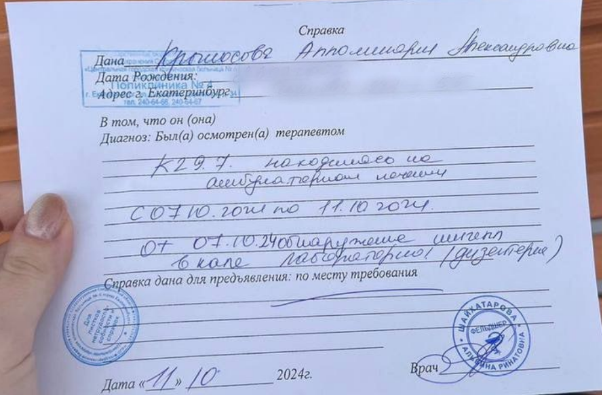 Справка
Дана Александровна
Поликлиника №
Дата Рождения:
Адрес г. Екатеринбург,
тел. 240-64-66,
В том, что он (она)
Диагноз: Был(а) осмотрен(а) терапевтом
K29.7. находилась на
амбулаторном лечении
с 07.10.2024 по 11.10.2024г.
От 07.10.24 обнаружена шигелл
в кале лаборатория (дизентерия)
Справка дана для предъявления: по месту требования
ШАЙХАТАРОВА
ФЕЛЬДШЕР
РИНАТОВНА
Врач
Дата «11» 10 2024г.